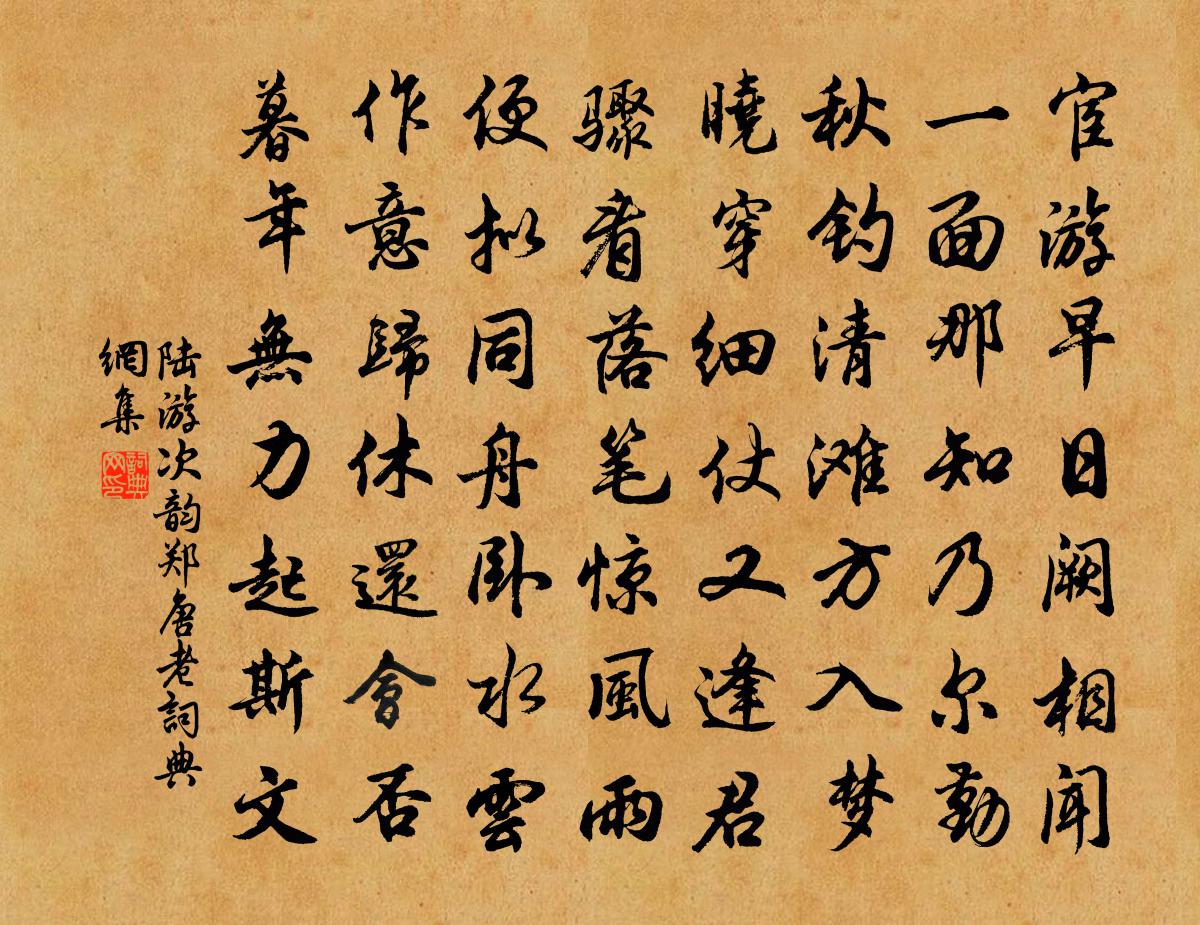 宦游早日阙相闻
一面那知乃尔勤
秋钓清滩方入梦
曉穿细仗又逢君
骤看落笔惊風雨
便拟同舟卧水雲
作意歸休還會否
暮年無力起斯文
陆游次韵郑唐老詞典
網集
詞典
网印